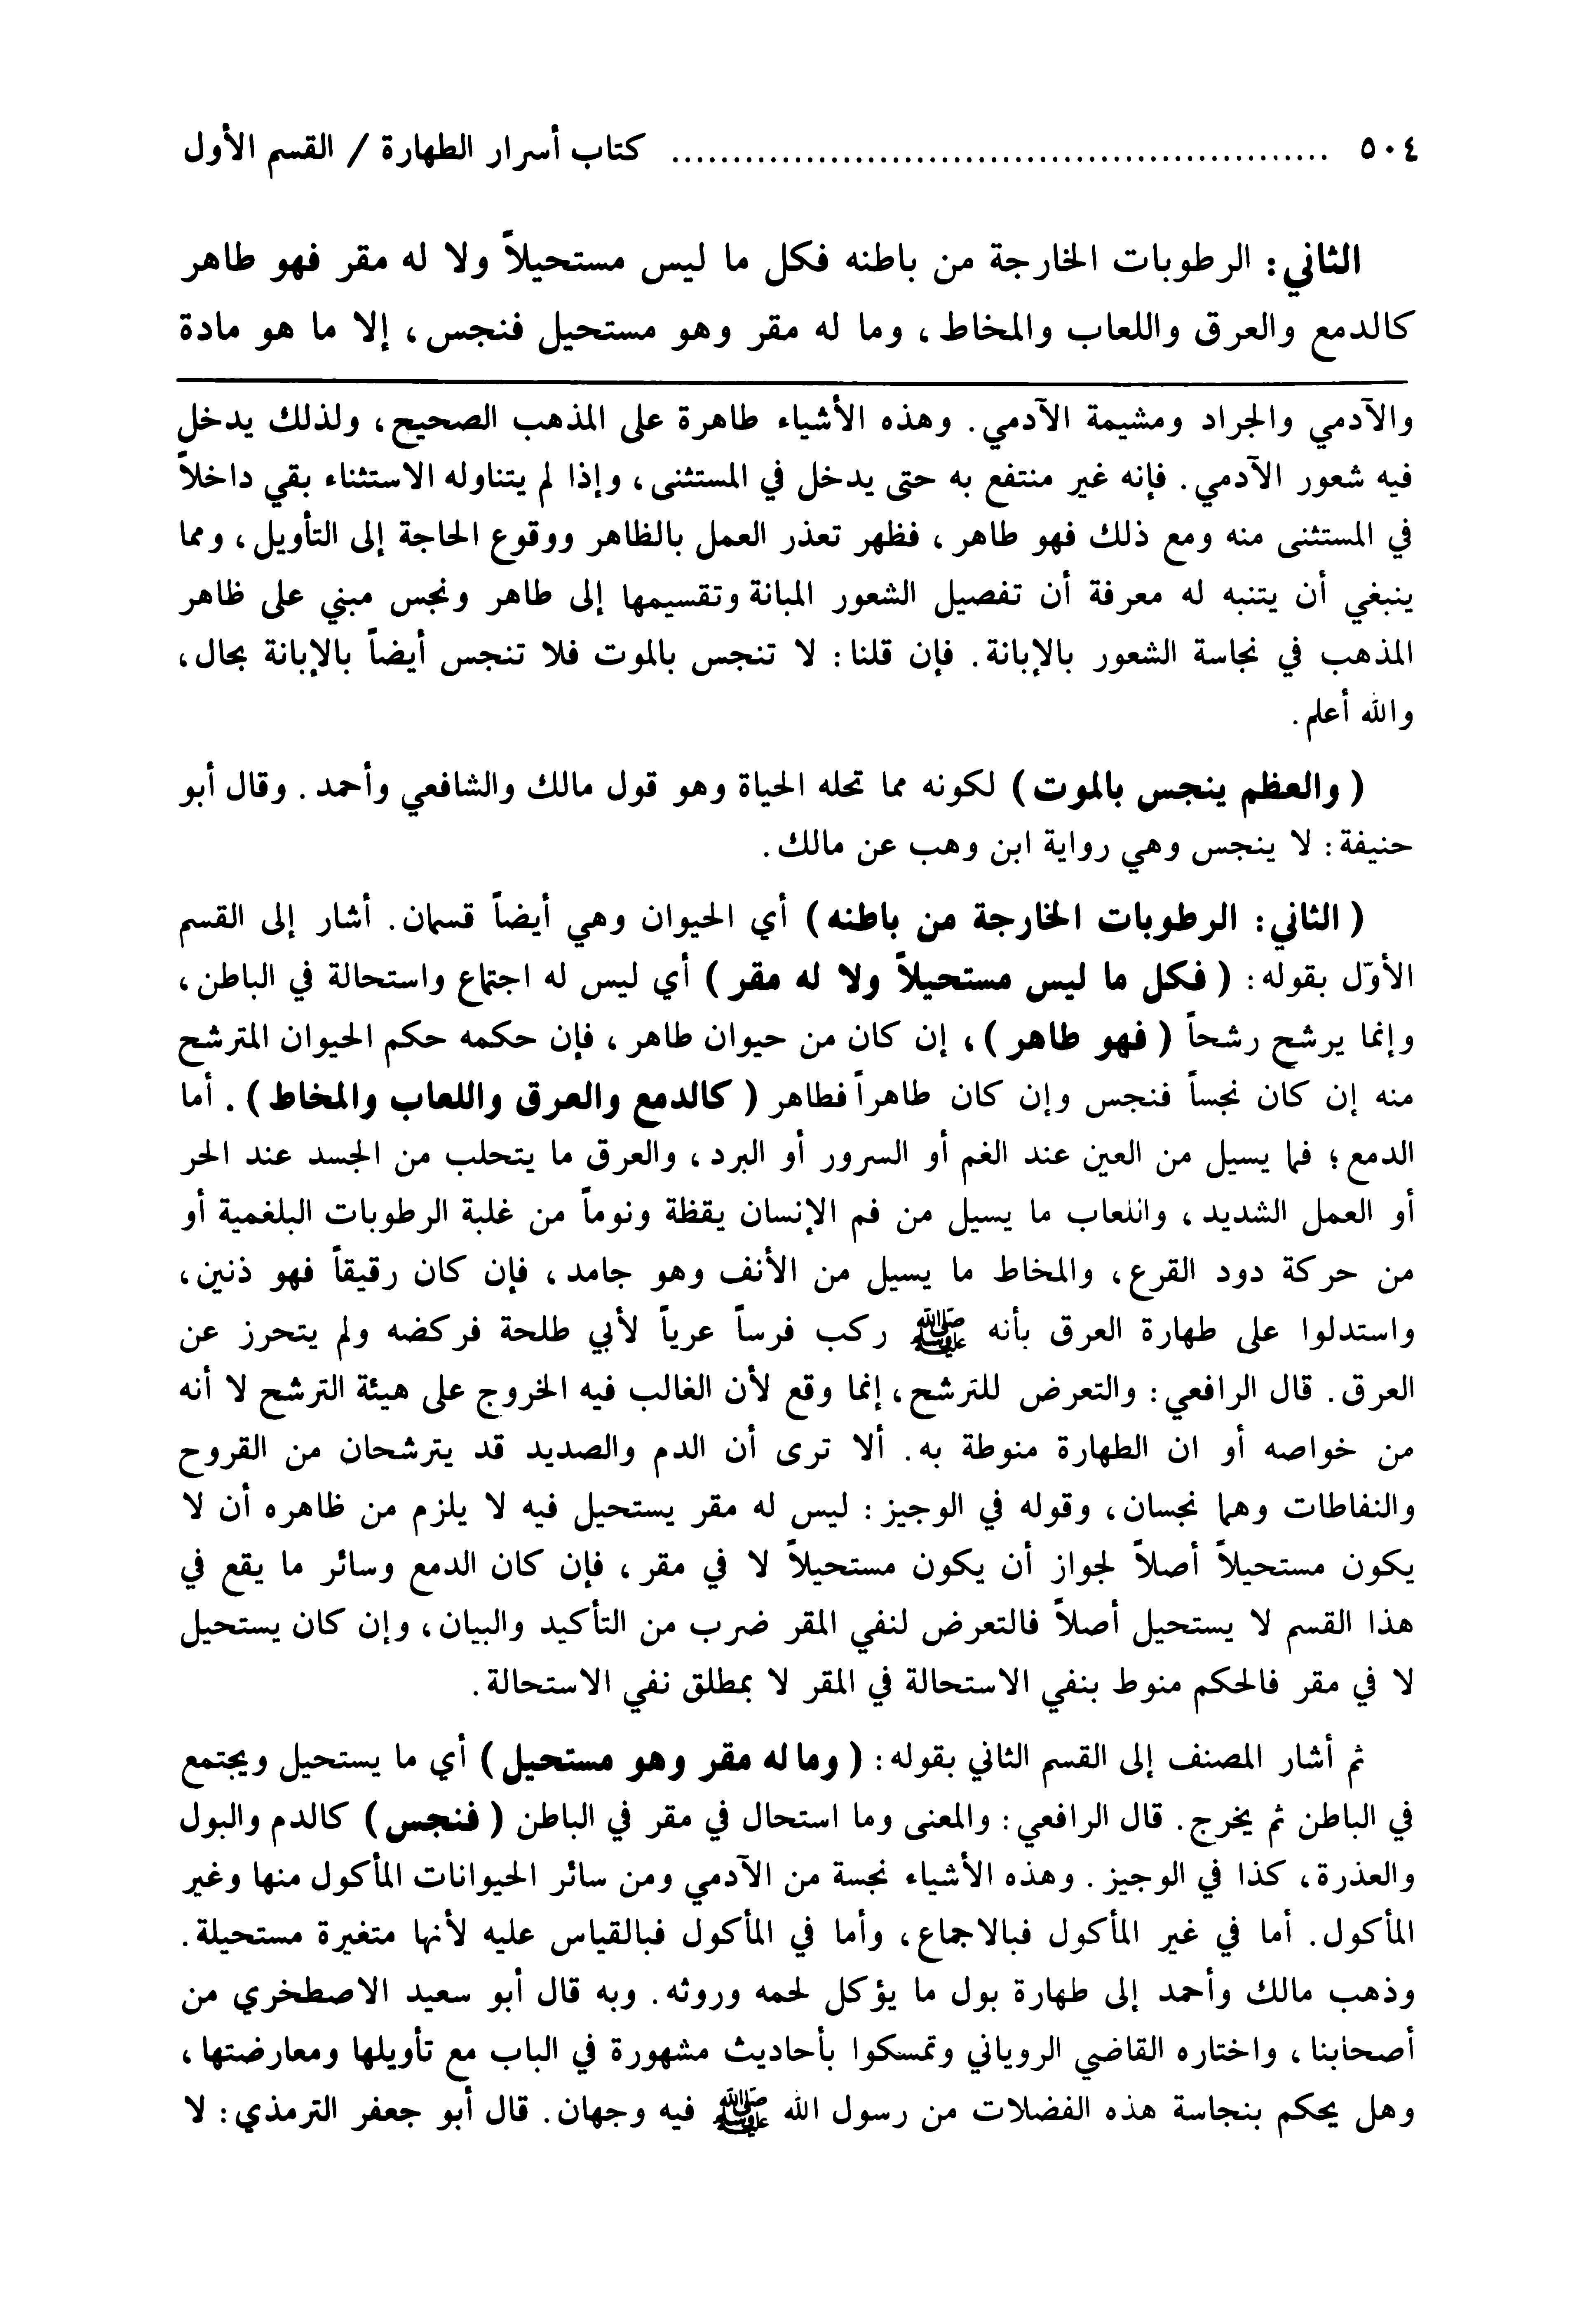 ٥٠٤ ........................................................ كتاب أسرار الطهارة / القسم الأول
الثاني: الرطوبات الخارجة من باطنه فكل ما ليس مستحيلاً ولا له مقر فهو طاهر
كالدمع والعرق واللعاب والمخاط، وما له مقر وهو مستحيل فنجس، إلا ما هو مادة
والآدمي والجراد ومشيمة الآدمي. وهذه الأشياء طاهرة على المذهب الصحيح، ولذلك يدخل
فيه شعور الآدمي. فإنه غير منتفع به حتى يدخل في المستثنى، وإذا لم يتناوله الاستثناء بقي داخلاً
في المستثنى منه ومع ذلك فهو طاهر، فظهر تعذر العمل بالظاهر ووقوع الحاجة إلى التأويل، ومما
ينبغي أن يتنبه له معرفة أن تفصيل الشعور المبانة وتقسيمها إلى طاهر ونجس مبني على ظاهر
المذهب في نجاسة الشعور بالإبانة. فإن قلنا: لا تنجس بالموت فلا تنجس أيضاً بالإبانة بحال،
والله أعلم.
( والعظم ينجس بالموت ) لكونه مما تحله الحياة وهو قول مالك والشافعي وأحمد. وقال أبو
حنيفة: لا ينجس وهي رواية ابن وهب عن مالك.
( الثاني: الرطوبات الخارجة من باطنه ) أي الحيوان وهي أيضاً قسمان. أشار إلى القسم
الأوّل بقوله: ( فكل ما ليس مستحيلاً ولا له مقر ) أي ليس له اجتماع واستحالة في الباطن،
وإنما يرشح رشحاً ( فهو طاهر )، إن كان من حيوان طاهر، فإن حكمه حكم الحيوان المترشح
منه إن كان نجساً فنجس وإن كان طاهراً فطاهر ( كالدمع والعرق واللعاب والمخاط ). أما
الدمع؛ فما يسيل من العين عند الغم أو السرور أو البرد، والعرق ما يتحلب من الجسد عند الحر
أو العمل الشديد، واللعاب ما يسيل من فم الإنسان يقظة ونوماً من غلبة الرطوبات البلغمية أو
من حركة دود القرع، والمخاط ما يسيل من الأنف وهو جامد، فإن كان رقيقاً فهو ذنين،
واستدلوا على طهارة العرق بأنه ﷺ ركب فرساً عرياً لأبي طلحة فركضه ولم يتحرز عن
العرق. قال الرافعي: والتعرض للترشح، إنما وقع لأن الغالب فيه الخروج على هيئة الترشح لا أنه
من خواصه أو ان الطهارة منوطة به. ألا ترى أن الدم والصديد قد يترشحان من القروح
والنفاطات وهما نجسان، وقوله في الوجيز: ليس له مقر يستحيل فيه لا يلزم من ظاهره أن لا
يكون مستحيلاً أصلاً لجواز أن يكون مستحيلاً لا في مقر، فإن كان الدمع وسائر ما يقع في
هذا القسم لا يستحيل أصلاً فالتعرض لنفي المقر ضرب من التأكيد والبيان، وإن كان يستحيل
لا في مقر فالحكم منوط بنفي الاستحالة في المقر لا بمطلق نفي الاستحالة.
ثم أشار المصنف إلى القسم الثاني بقوله: ( وما له مقر وهو مستحيل ) أي ما يستحيل ويجتمع
في الباطن ثم يخرج. قال الرافعي: والمعنى وما استحال في مقر في الباطن ( فنجس ) كالدم والبول
والعذرة، كذا في الوجيز. وهذه الأشياء نجسة من الآدمي ومن سائر الحيوانات المأكول منها وغير
المأكول. أما في غير المأكول فبالاجماع، وأما في المأكول فبالقياس عليه لأنها متغيرة مستحيلة.
وذهب مالك وأحمد إلى طهارة بول ما يؤكل لحمه وروثه. وبه قال أبو سعيد الاصطخري من
أصحابنا، واختاره القاضي الروياني وتمسكوا بأحاديث مشهورة في الباب مع تأويلها ومعارضتها،
وهل يحكم بنجاسة هذه الفضلات من رسول الله ﷺ فيه وجهان. قال أبو جعفر الترمذي: لا